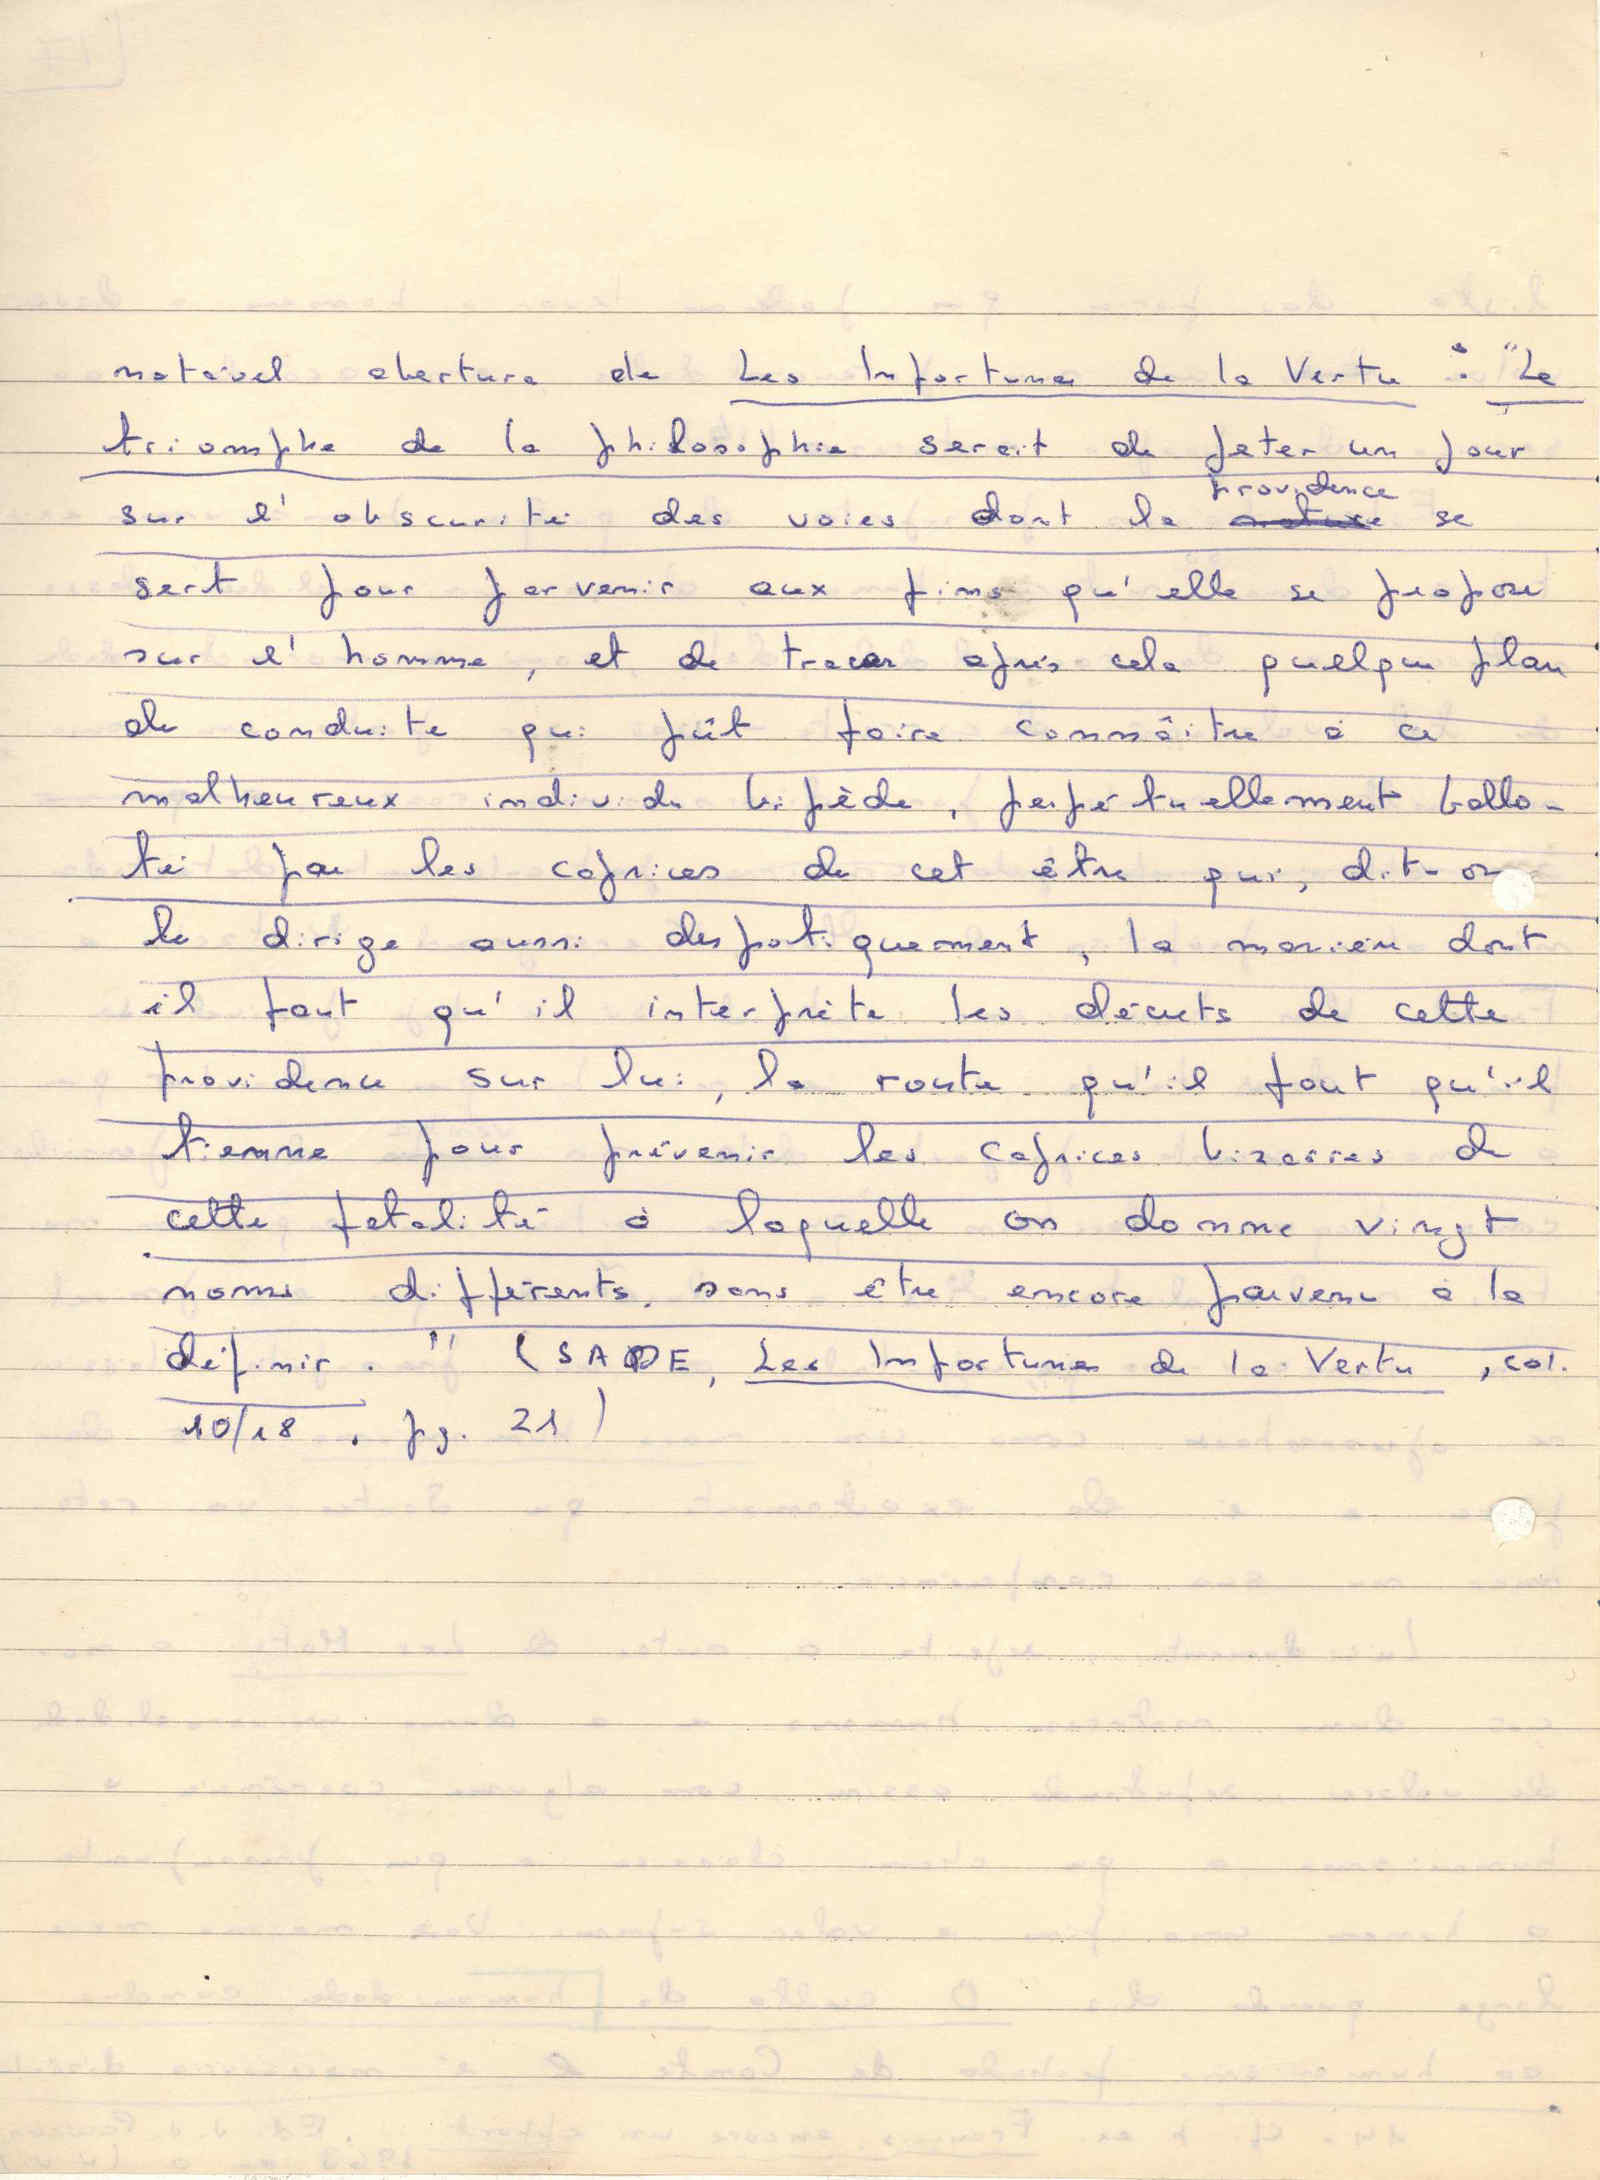 notável abertura de Les Infortunes de la Vertu : "Le
triomphe de la philosophie serait de jeter un jour
sur l'obscurité des voies dont la providence se
sert pour parvenir aux fins qu'elle se propose
sur l'homme, et de tracer après cela quelque plan
de conduite qui pût faire connaître à ce
malheureux individu bipède, perpétuellement ballo-
té par les caprices de cet être qui, dit-on
le dirige aussi despotiquement, la manière dont
il faut qu'il interprète les décrets de cette
providence sur lui, la route qu'il faut qu'il
tienne pour prévenir les caprices bizarres de
cette fatalité à laquelle on donne vingt
noms différents, sans être encore parvenu à la
définir." (SADE, Les Infortunes de la Vertu, col.
10/18, pg. 21)